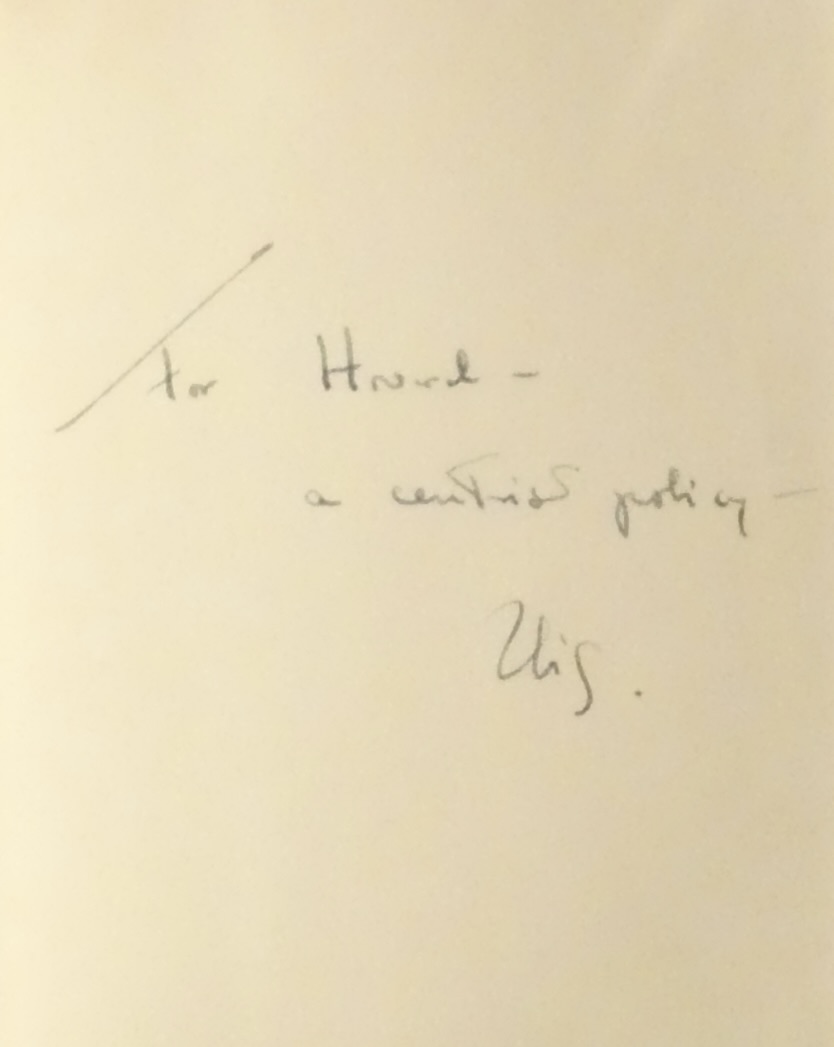 for Howard –
a centrist policy –